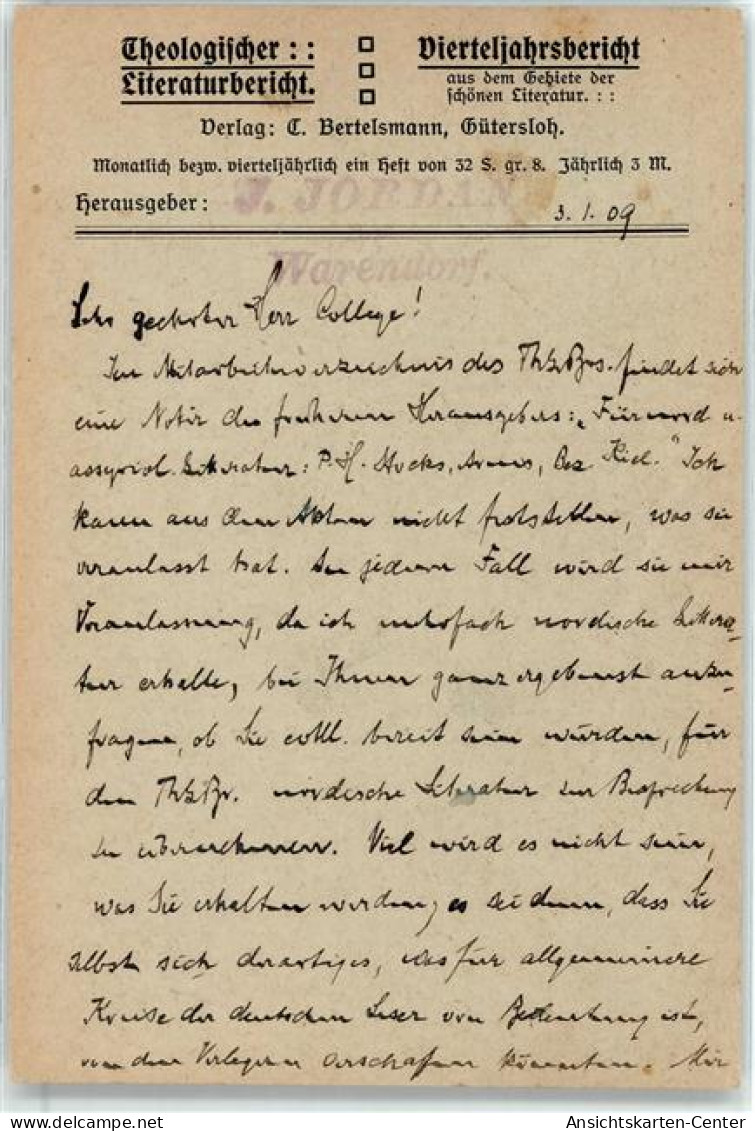 Theologischer : :
Literaturbericht.
Vierteljahrsbericht
aus dem Gebiete der
schönen Literatur. : :
Verlag: C. Bertelsmann, Gütersloh.
Monatlich bezw. vierteljährlich ein Heft von 32 S. gr. 8. Jährlich 3 M.
Herausgeber: J. JORDAN
3. 1. 09
Warendorf.
Sehr geehrter Herr College!
Im Mitarbeiterverzeichnis des ThLBrs. findet sich
eine Notiz des früheren Herausgebers: „Für nord u.
assyriol. Litteratur: P. H. Arnis, Bez Kiel." Ich
kann aus den Akten nicht feststellen, was sie
veranlasst hat. In jedem Fall wird sie mir
Veranlassung, da ich mehrfach nordische Littera-
tur erhalte, bei Ihnen ganz ergebenst anzu-
fragen, ob Sie evtll. bereit sein würden, für
den ThLBr. nordische Literatur zur Besprechung
zu übernehmen. Viel wird es nicht sein,
was Sie erhalten werden, es sei denn, dass Sie
selbst sich derartiges, was für allgemeinere
Kreise der deutschen Leser von Bedeutung ist,
von den Verlegern verschaffen könnten. Mir
Ansichtskarten-Center